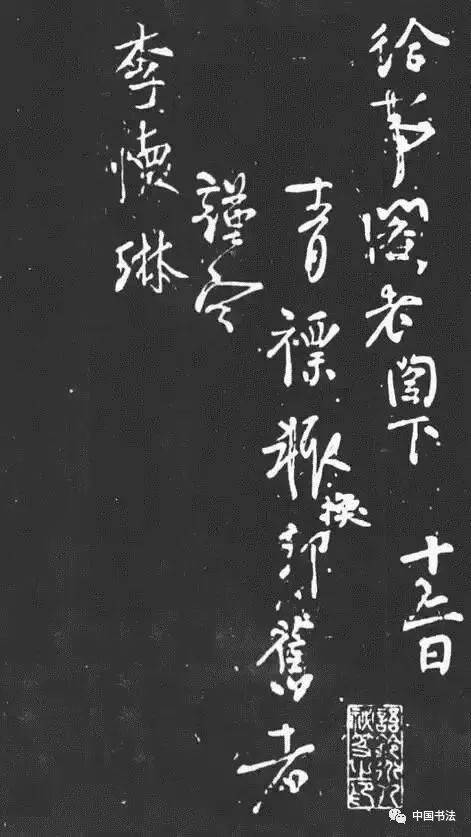 給事閣老閣下
十日
青褾輒換却舊者
謹空
李懷琳
中国书法